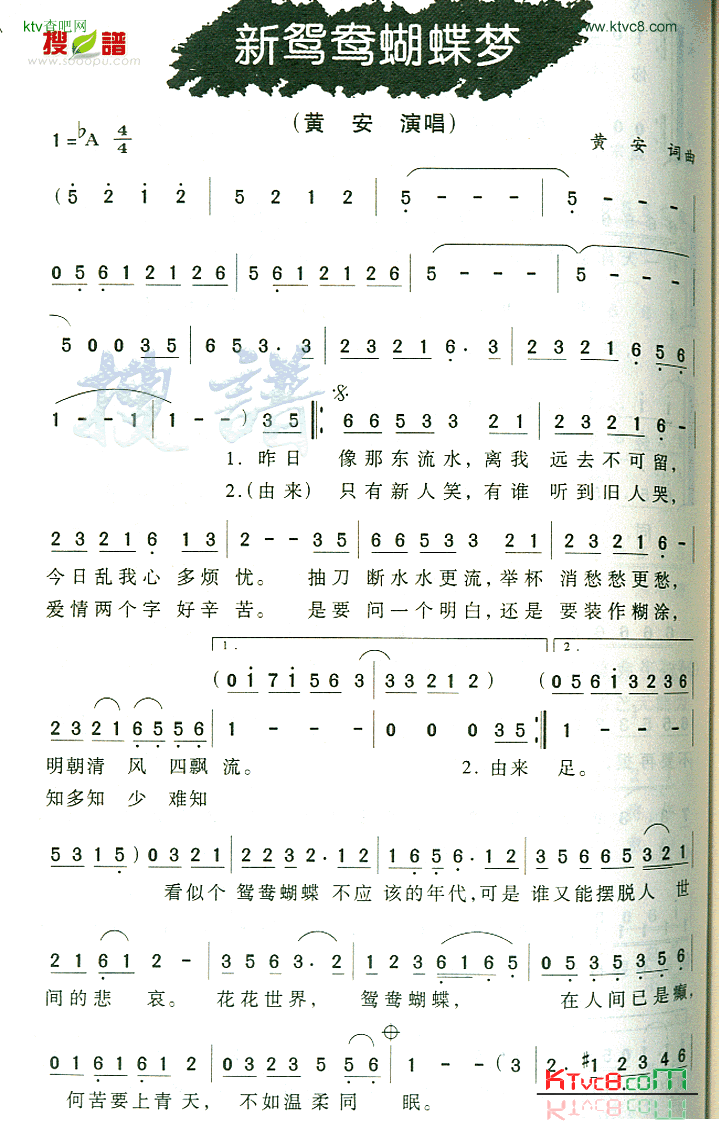 ktv查吧网
www.ktvc8.com
搜谱
www.sooopu.com
新鸳鸯蝴蝶梦
(黄 安 演唱)
1=♭A 4/4
黄 安 词曲
(5 2 i 2 | 5 2 1 2 | 5 - - - | 5 - - -
0 5 6 1 2 1 2 6 | 5 6 1 2 1 2 2 6 | 5 - - - | 5 - - -
5 0 0 3 5 | 6 5 3 · 3 | 2 3 2 1 6 · 3 | 2 3 2 1 6 5 6
1 - - | 1 - - ) 3 5 ‖: 6 6 5 3 3 2 1 | 2 3 2 1 6 -
1. 昨日 像那东流水,离我 远去不可留,
2.(由来) 只有新人笑,有谁 听到旧人哭,
2 3 2 1 6 1 3 | 2 - - 3 5 | 6 6 5 3 3 2 1 | 2 3 2 1 6 -
今日乱我心 多烦忧。 抽刀 断水水更流,举杯 消愁愁更愁,
爱情两个字 好辛苦。 是要 问一个明白,还是 要装作糊涂,
1. 2.
(0 i 7 i 5 6 3 | 3 3 2 1 2 ) (0 5 6 i 3 2 3 6
2 3 2 1 6 5 5 6 | 1 - - - | 0 0 0 3 5 :‖ 1 - - -
明朝清 风 四飘流。 2.由来 足。
知多知 少 难知
5 3 1 5 ) 0 3 2 1 | 2 2 3 2 · 1 2 | 1 6 5 6 · 1 2 | 3 5 6 6 5 3 2 1
看似个 鸳鸯蝴蝶 不应 该的年代,可是 谁又能摆脱人 世
2 1 6 1 2 - | 3 5 6 3 · 2 | 1 2 3 6 1 6 5 | 0 5 3 5 3 5 6
间的悲 哀。 花花世界, 鸳鸯蝴蝶, 在人间已是癫,
0 1 6 1 6 1 2 | 0 3 2 3 5 5 6 | 1 - - (3 | 2 · #1 2 3 4 6
何苦要上青天, 不如温柔同 眠。
KTvc8.com